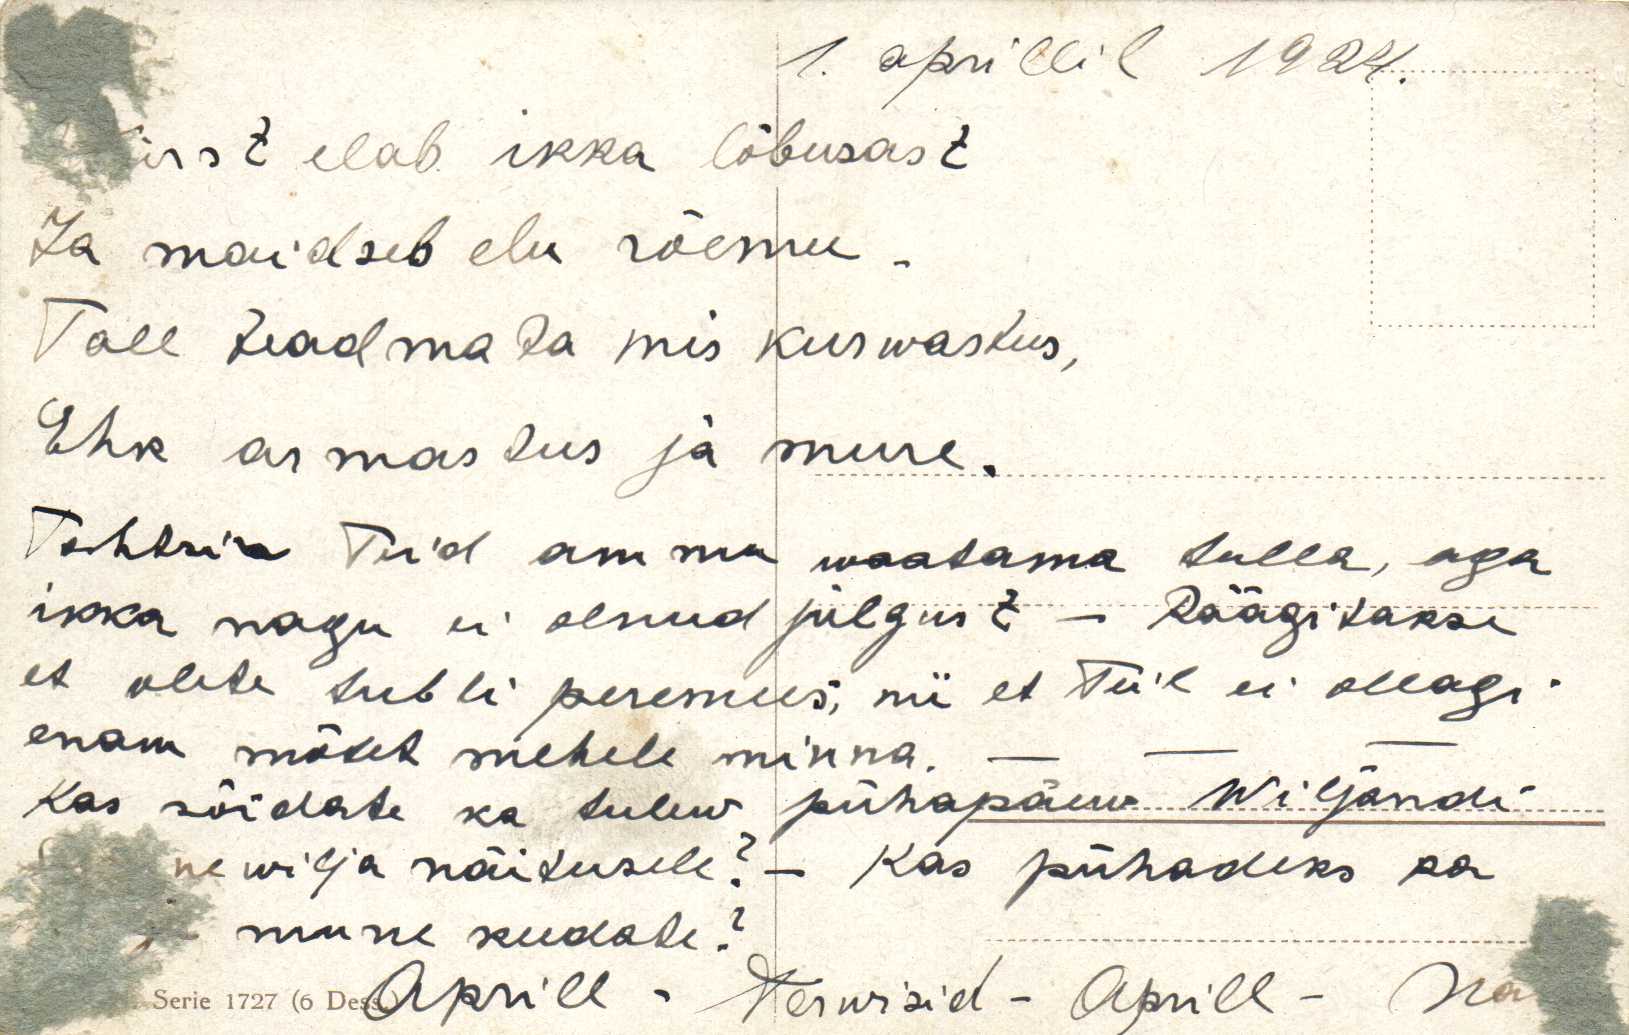 1. aprillil 1924.
elab ikka lõbusast
Ja maidseb elu rõemu -
Tall teadmata mis kurwastus,
Ehk armastus ja mure.
Tahtsin Teid ammu waatama tulla, aga
ikka nagu ei olnud julgust - Räägitakse
et olete tubli peremees, nii et Teil ei ollagi
enam mõtet mehele minna. — — —
Kas sõidate ka tulew pühapäew Wiljandi
newilja näitusele? - Kas pühadeks ka
mune keedate?
Serie 1727 (6 Dess.) Aprill - Terwisid - Aprill -